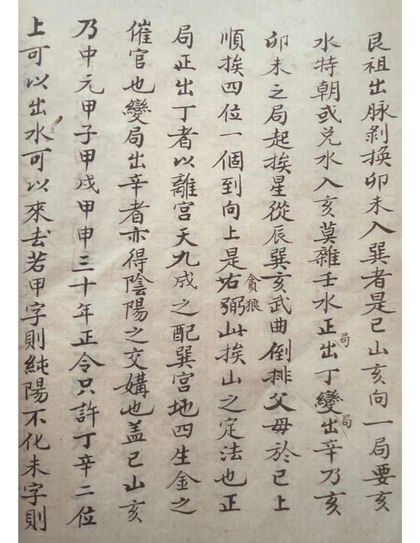 艮祖出脉剝換卯未入巽者是巳山亥向一局要亥
水特朝或兑水入亥莫雜壬水正出局丁變出局辛乃亥
卯未之局起挨星從辰巽亥武曲倒排父母於巳上
順挨四位一個到向上是右弼貪狼此挨山之定法也正
局正出丁者以離宮天九成之配巽宮地四生金之
催官也變局出辛者亦得陰陽之交媾也盖巳山亥
乃中元甲子甲戌甲申三十年正令只許丁辛二位
上可以出水可以來去若甲字則純陽不化未字則